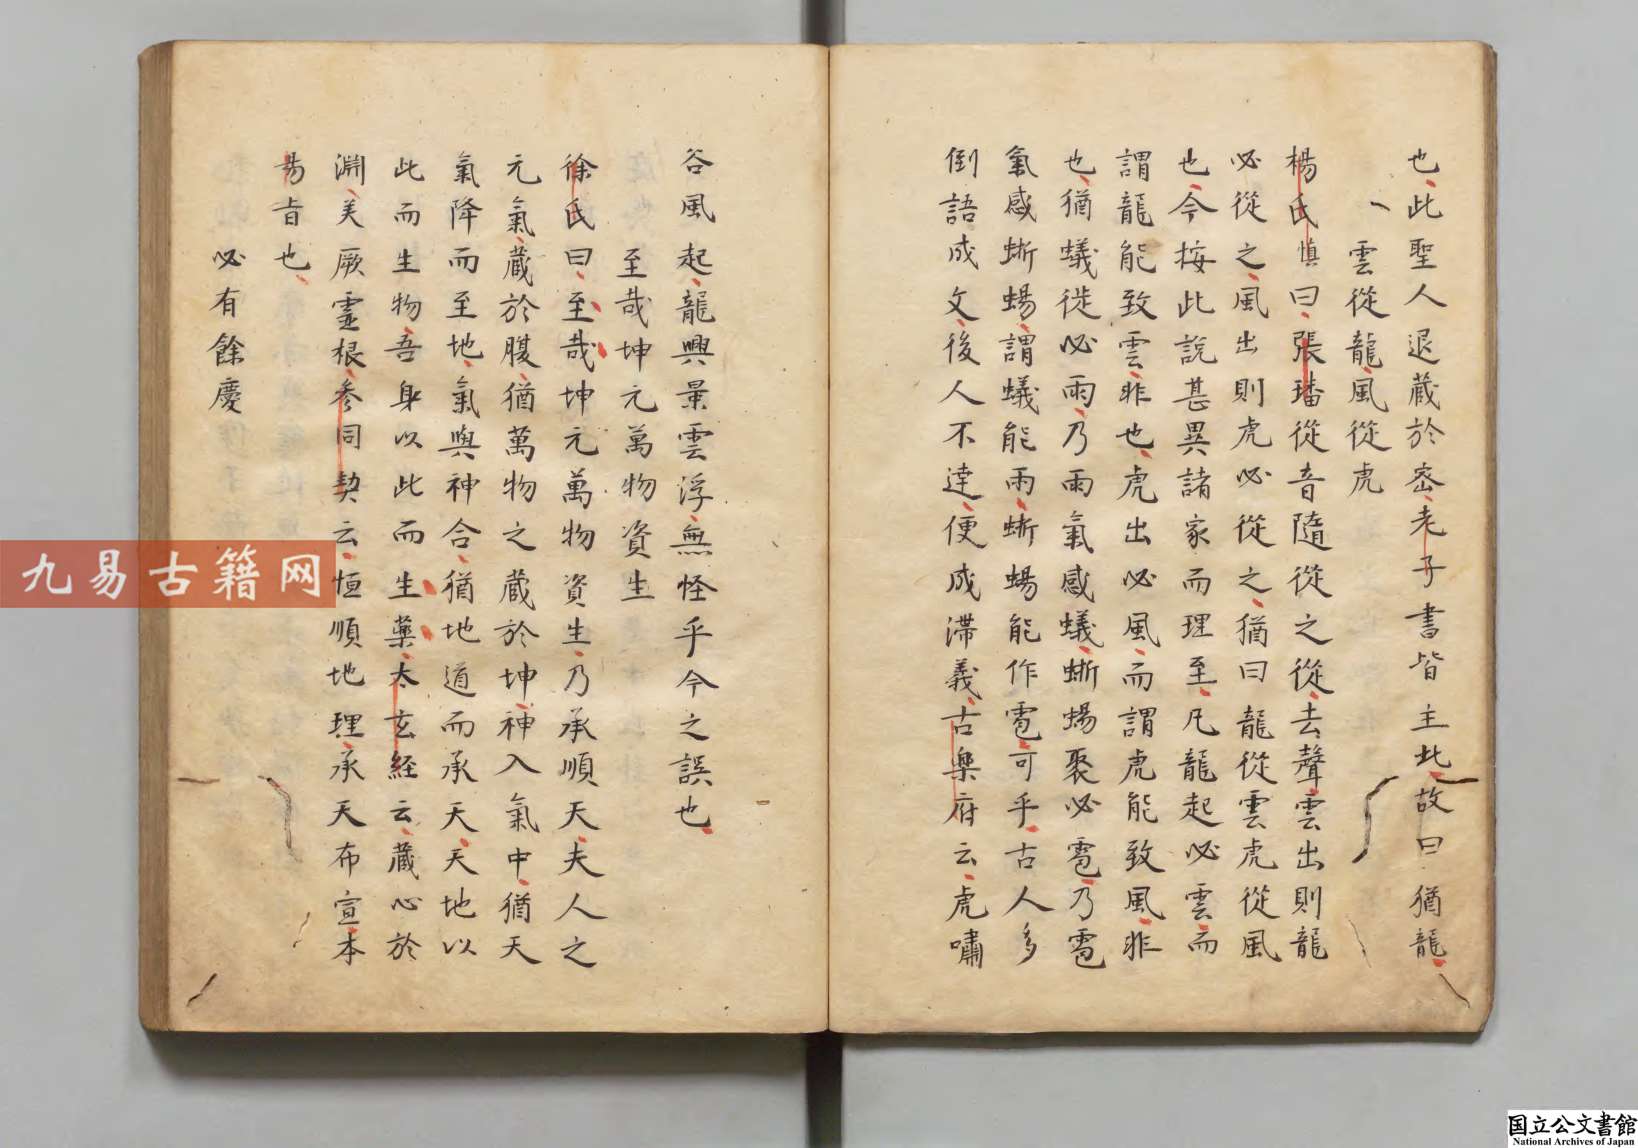 也此聖人退蔵於宻老子書皆主此故曰猶龍
雲從龍風從虎
楊氏慎曰張璠從音隨從之從去聲雲出則龍
必從之風出則虎必從之猶曰龍從雲虎從風
也今按此說甚異諸家而理至凡龍起必雲而
謂龍能致雲非也虎出必風而謂虎能致風非
也猶蟻徙必雨乃雨氣感蟻蜥蜴聚必雹乃雹
氣感蜥蜴謂蟻能雨蜥蜴能作雹可乎古人多
倒語成文後人不達便成滞義古樂府云虎嘯
谷風起龍興景雲浮無怪乎今之誤也
至哉坤元萬物資生
徐氏曰至哉坤元萬物資生乃承順天夫人之
元氣蔵於腹猶萬物之蔵於坤神入氣中猶天
氣降而至地氣與神合猶地道而承天天地以
此而生物吾身以此而生藥太玄経云蔵心於
淵美厥靈根參同契云恒順地理承天布宣本
易旨也
必有餘慶
九易古籍网
国立公文書館
National Archives of Japan